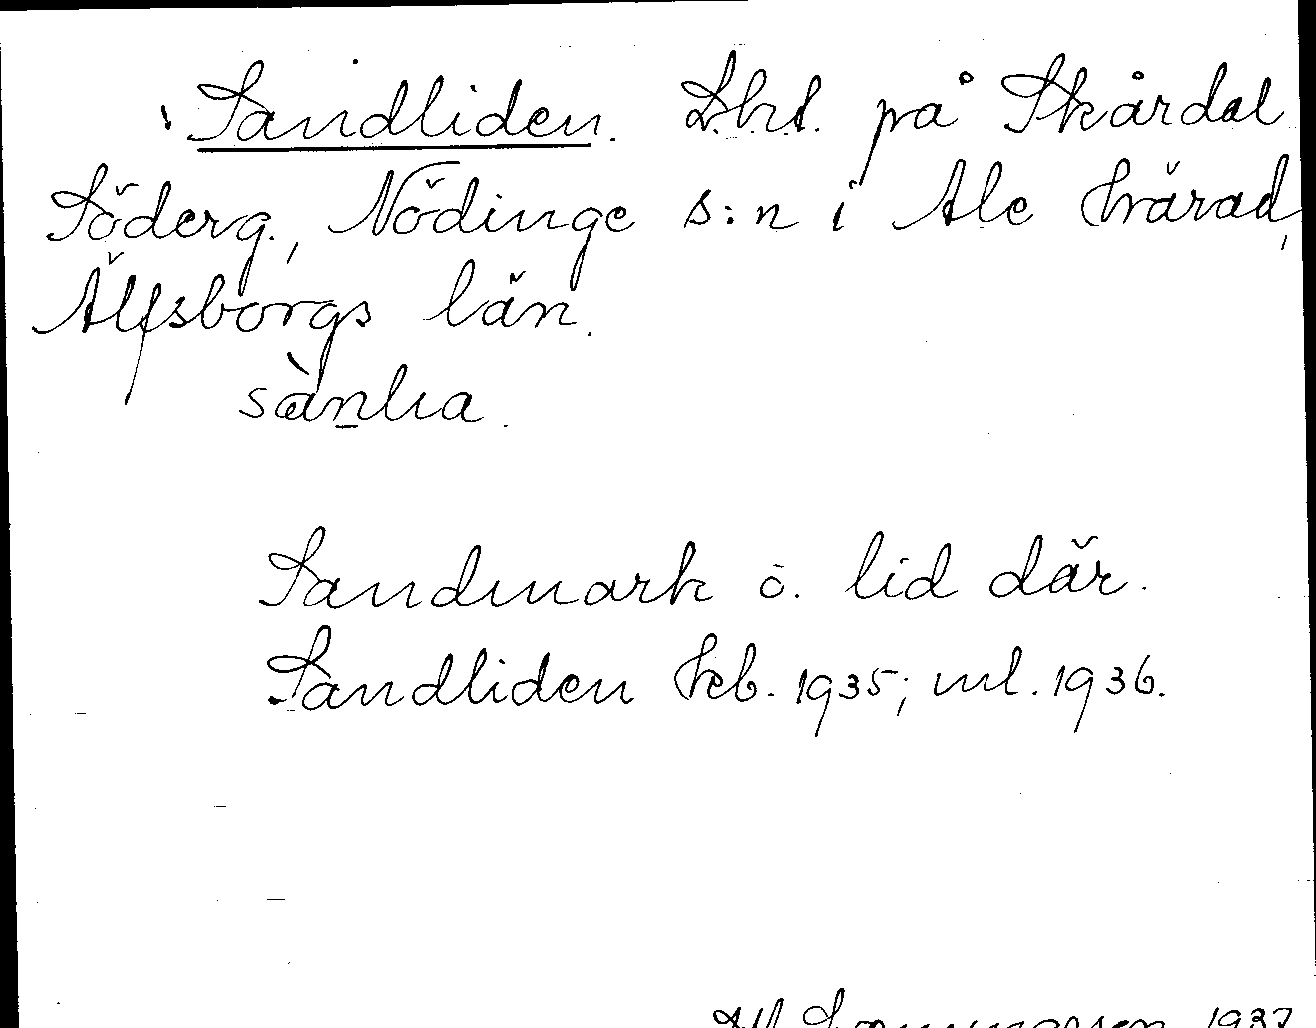 Sandliden. Lht. på Skårdal
Söderg., Nödinge s:n i Ale härad,
Älfsborgs län.
sànlia.
Sandmark o. lid där.
Sandliden Jeb. 1935; ml. 1936.
1937